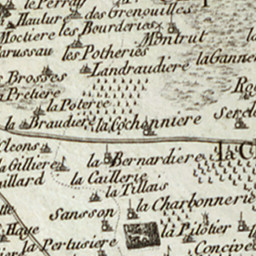 le Perray
des Grenouilles
Hautur
les Bourderies
Moctiere
Montrut
arussau
les Potheries
la Ganne
Landraudiere
s Brosses
la Pretiere
la Poterie
la Braudiere
la Cochonniere
Cleons
la Bernardiere
la C
la Gilliere
la Caillerie
aillard
la Tillais
la Charbonnerie
Sansson
la Pilotier
Haye
la Pertusiere
Concive